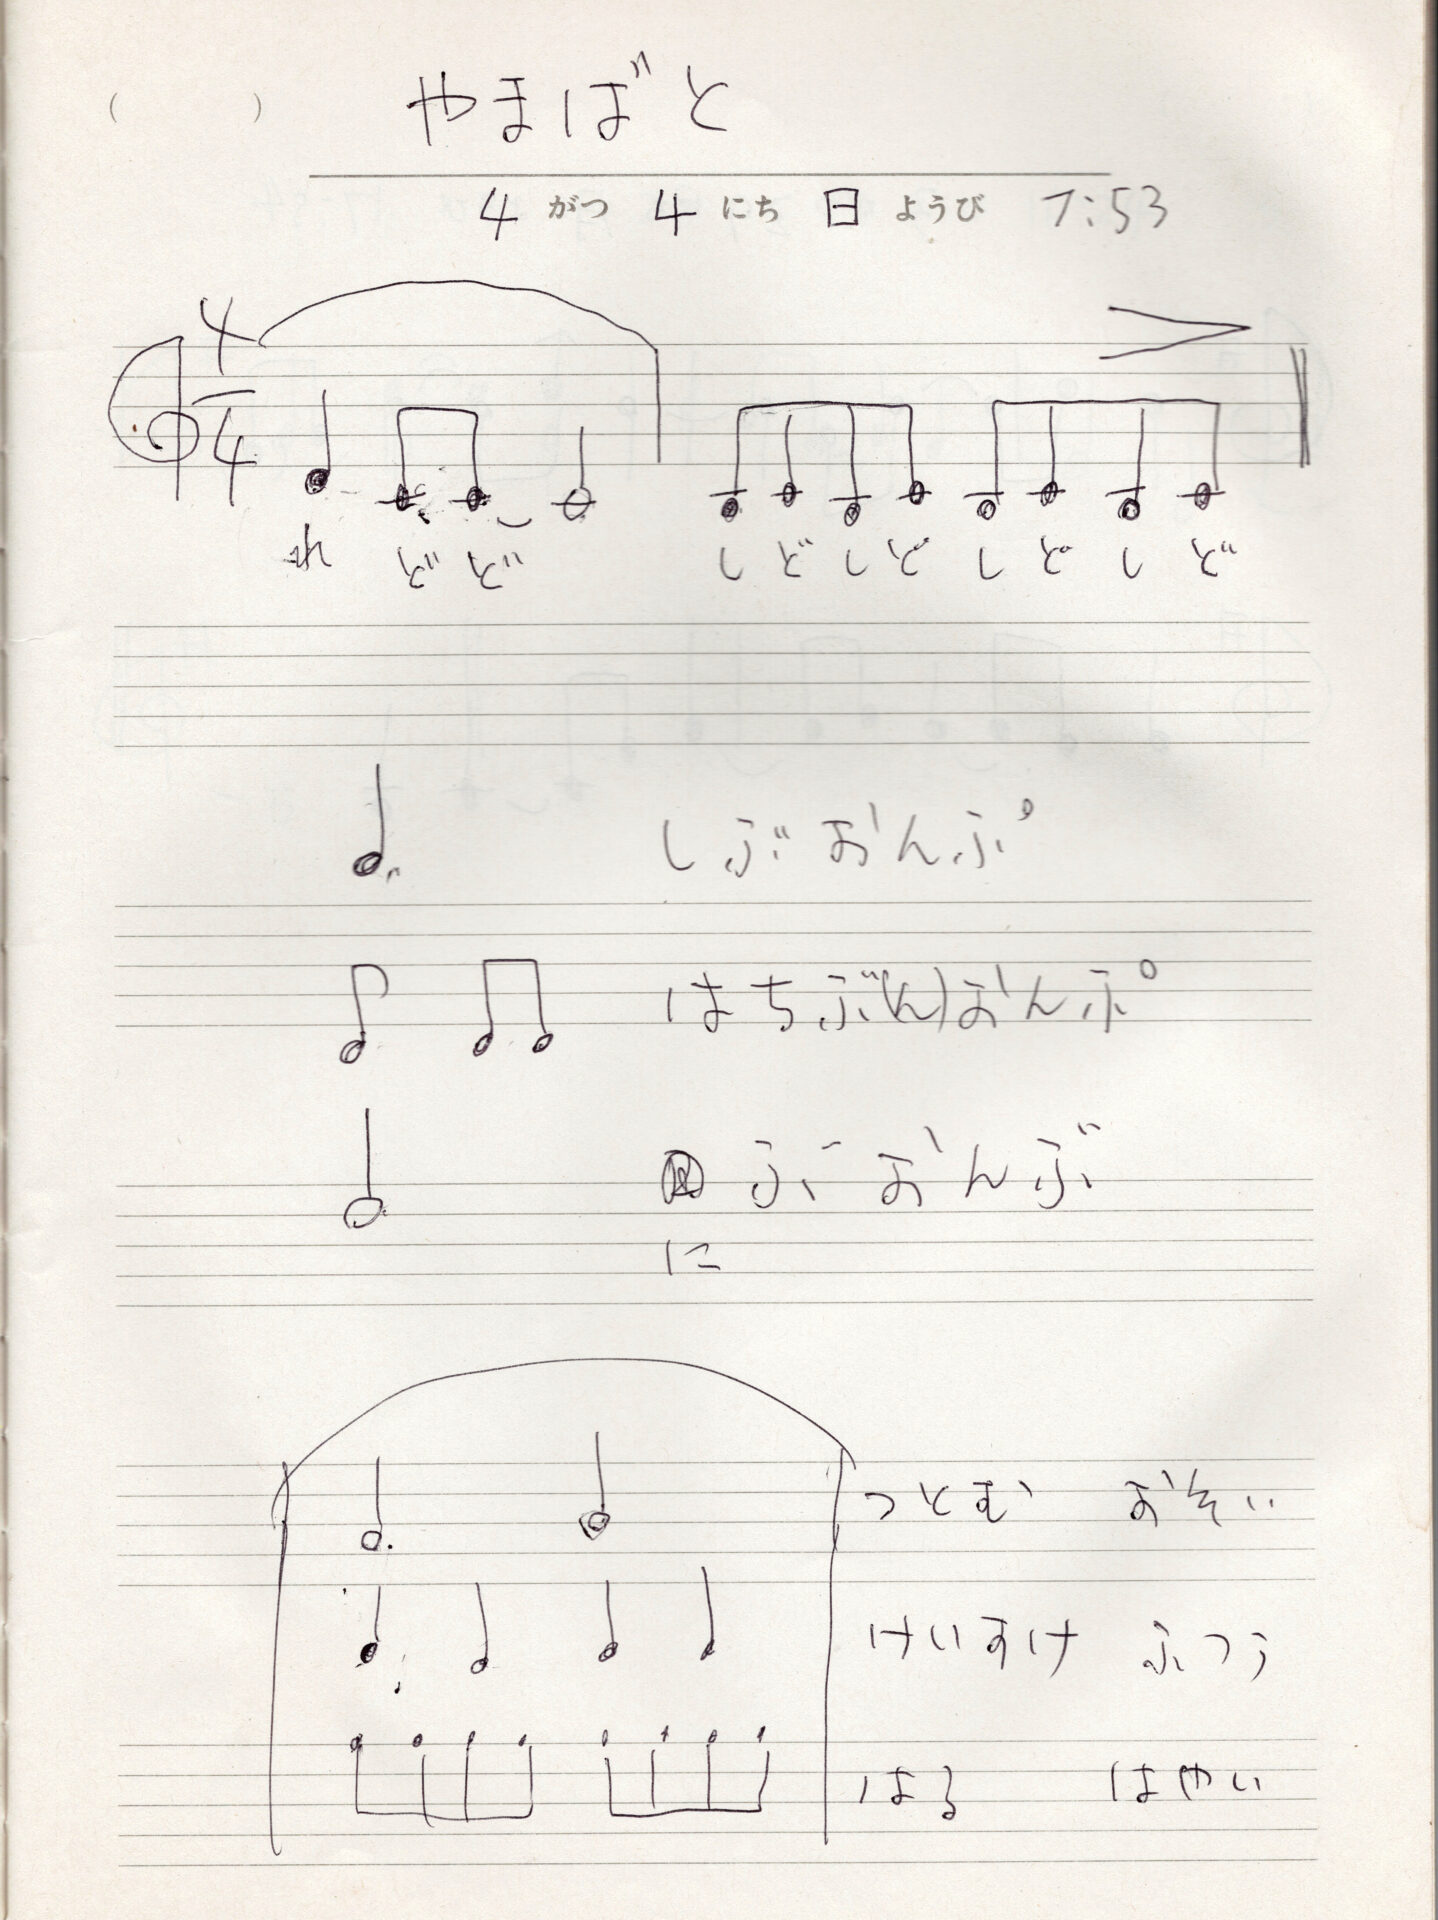 ( ) やまばと
4 がつ 4 にち 日 ようび 7:53
4
4
れ ど ど し ど し ど し ど し ど
しぶおんぷ
はちぶ(ん)おんぷ
ぶおんぶ
に
つとむ おそい
けいすけ ふつう
はる はやい